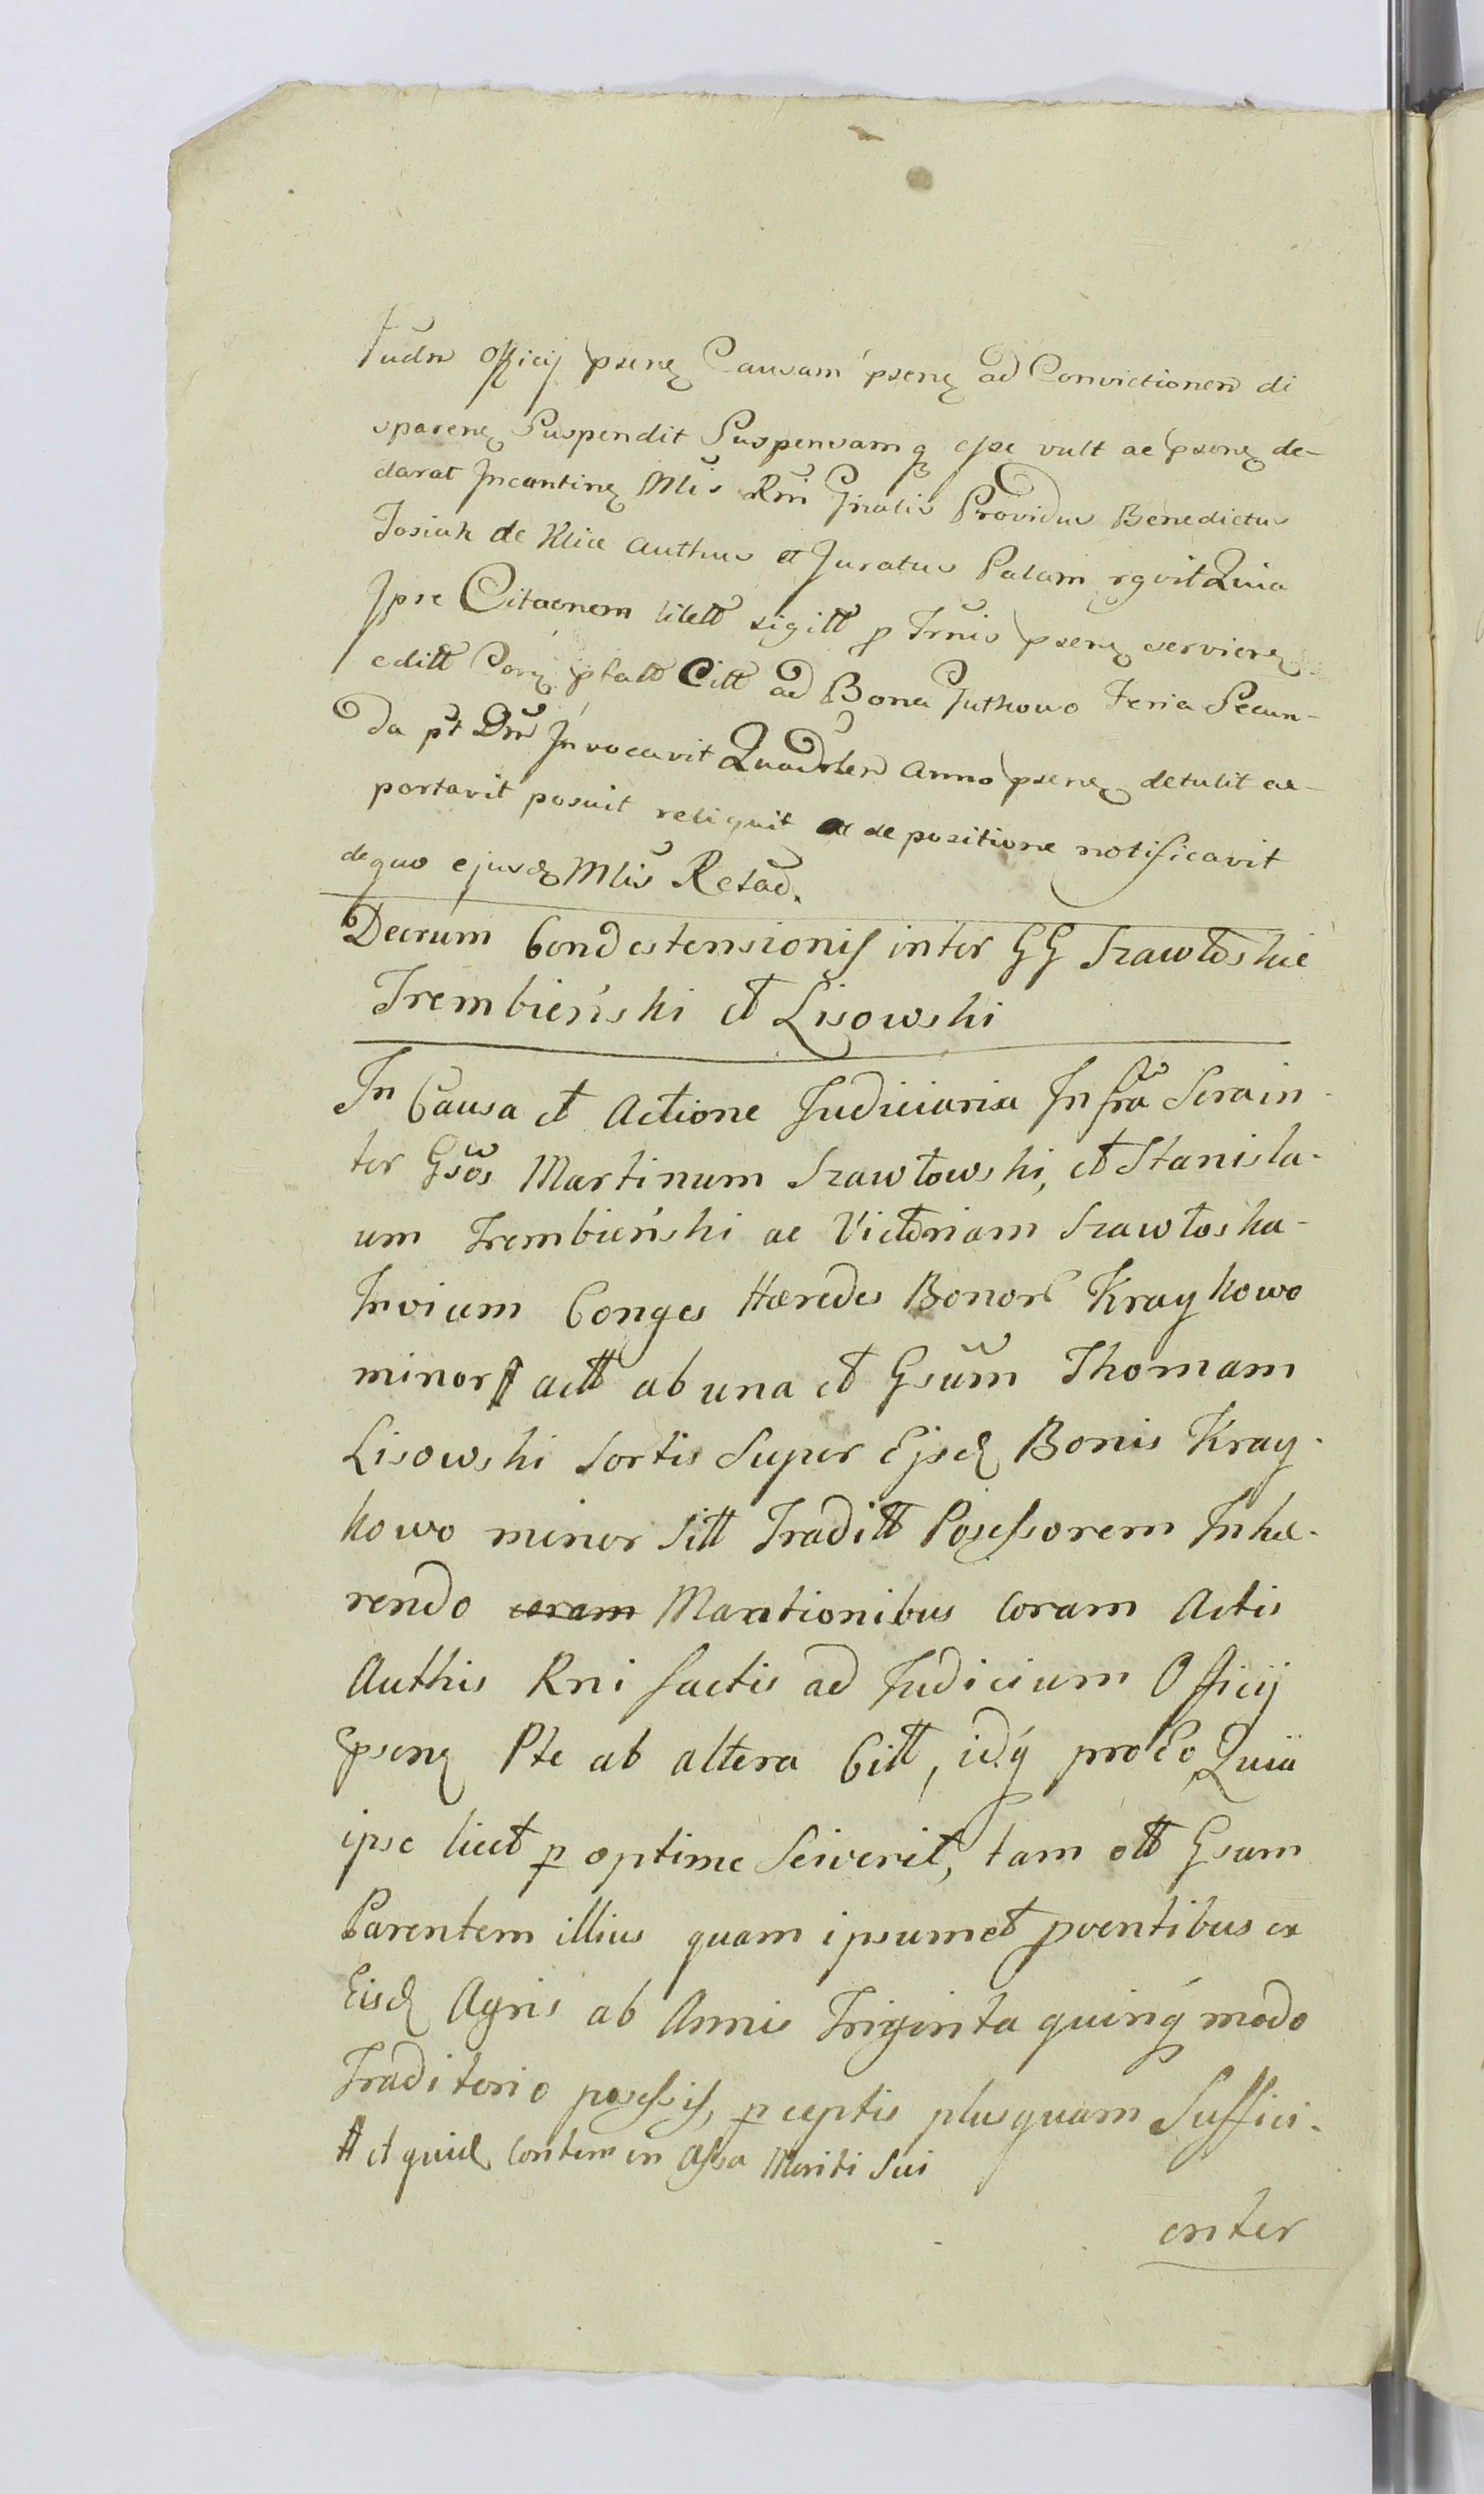 Judm Officij psenę Causam psenę ad Convictionem di
sparenę Suspendit Suspensamq esse vult ac psenę de-
clarat Incontinę Mlis Rni Gnalis Providus Benedictus
Josiak de Klice Authus et Juratus Palam rgvit Quia
Ipse Citaonem litelt sigillt p Trnis psenę servienę
editt Corę ptatt Citt ad Bona Gutkowo Feria Secun-
da pt Dm Invocavit Quadrlem Anno psenę detulit ac
portavit posuit reliquit ac de positione notificavit
de quo ejusd Mlis Relao.
Decrum Condestensionis inter GG Szawłoskie
Trembieński et Lisowski
In Causa et Actione Judiciaria Infra Scra in-
ter Gsos Martinum Szawłowski, et Stanisla-
um Trembieński ac Victoriam Szawłoska
Invicem Conges Hæredes Bonor Kraykowo
minor # actt ab una et Gsum Thomam
Lisowski Sortis Super Ejsd Bonis Kray-
kowo minor Sitt Traditt Possessorem Inhæ-
rendo coram Mantionibus Coram Actis
Authis Rni factis ad Judicium Officij
psenę Pte ab altera Citt, idq pro Eo Quia
ipse licet p optime Sciverit, tam ott Gsum
Parentem illius quam ipsumet pventibus ex
Eisd Agris ab Annis Triginta quinq modo
Traditorio possessis, p ceptis plusquam Suffici-
# et quid Contem in Assa Mariti Sui
enter